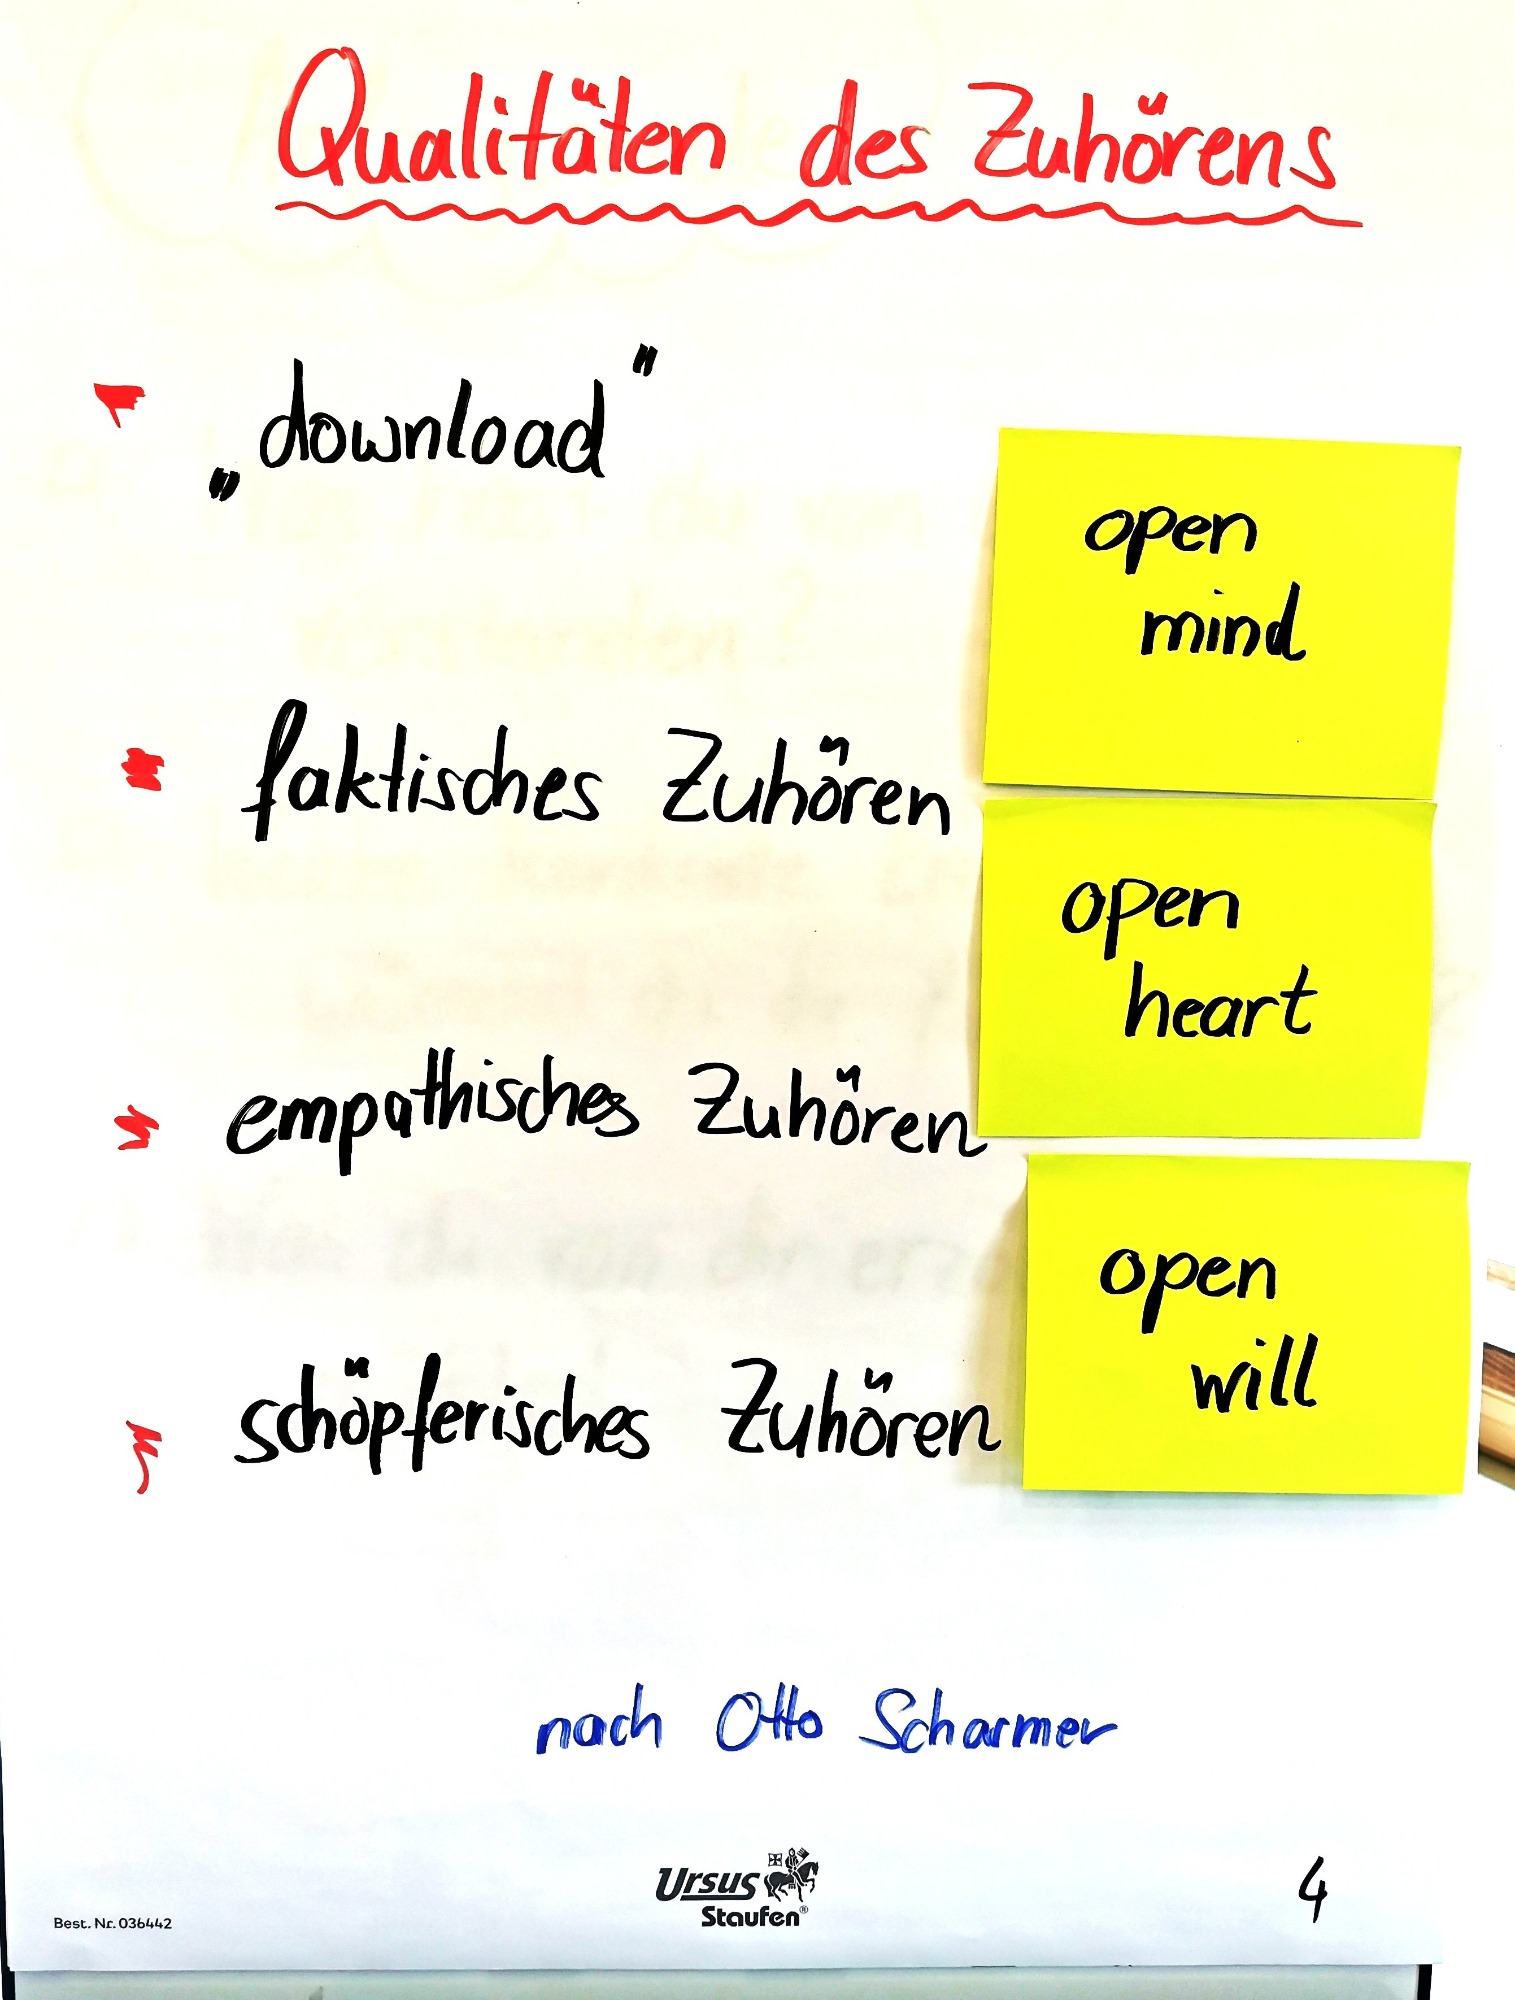 Qualitäten des Zuhörens
„download"
open
mind
faktisches Zuhören
open
heart
empathisches Zuhören
open
will
schöpferisches Zuhören
nach Otto Scharmer
Ursus
Staufen®
4
Best. Nr. 036442